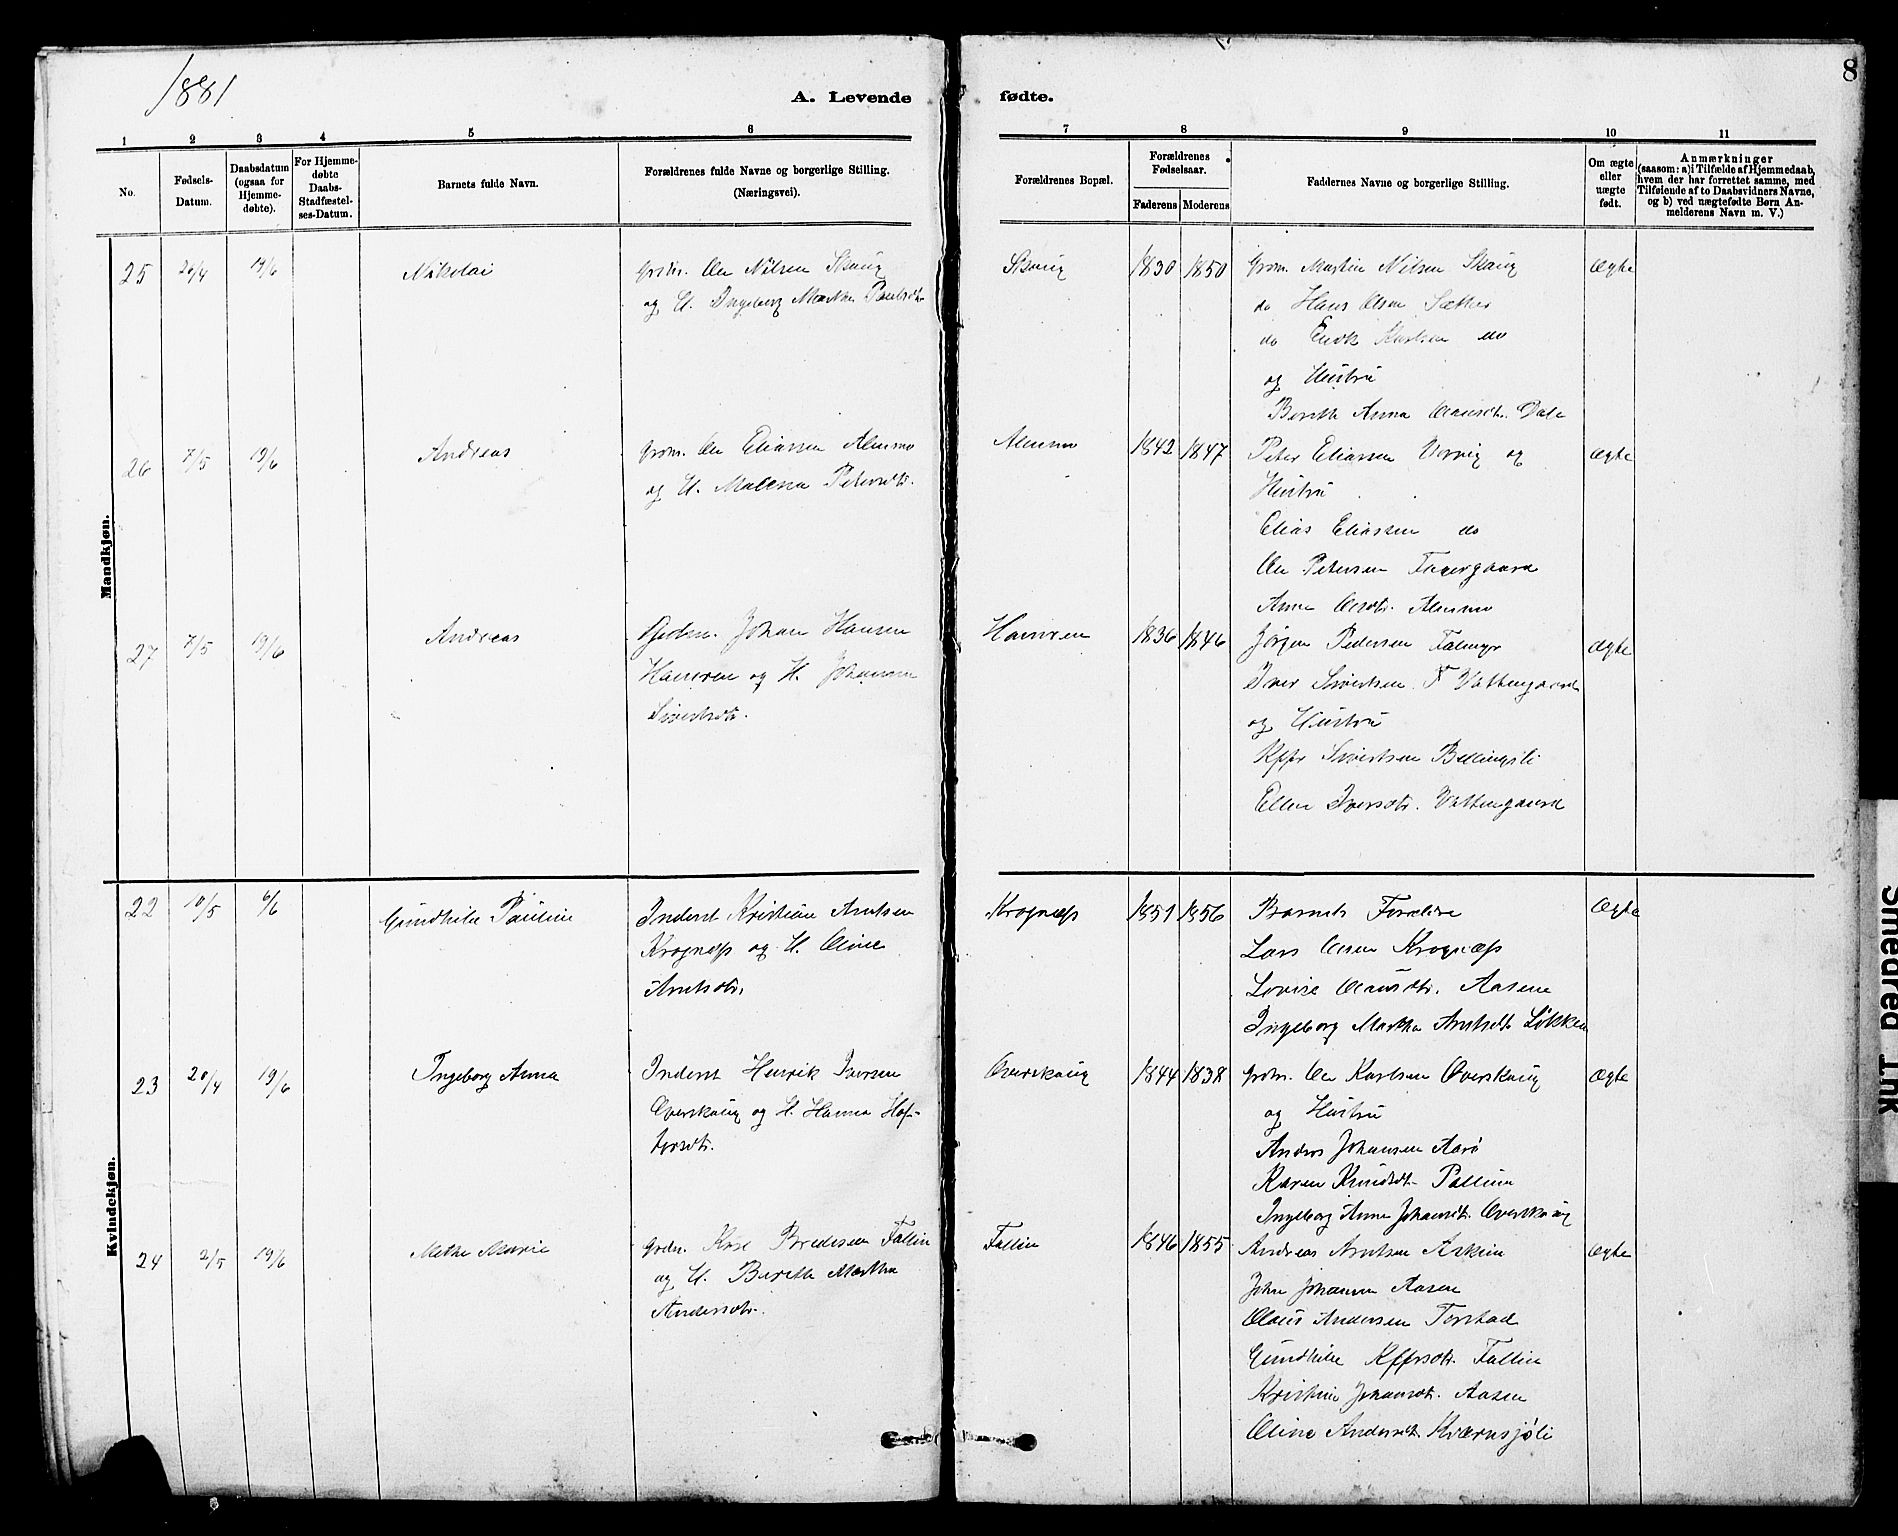 1881
A. Levende fødte.
8
1 2 3 4 5 6 7 8 9 10 11
No.
Fødsels-
Datum.
Daabsdatum
(ogsaa for
Hjemme-
døbte).
For Hjemme-
døbte
Daabs-
Stadfæstel-
ses-Datum.
Barnets fulde Navn.
Forældrenes fulde Navne og borgerlige Stilling.
(Næringsvei).
Forældrenes Bopæl.
Forældrenes
Fødselsaar.
Faderens Moderens
Faddernes Navne og borgerlige Stilling.
Om ægte
eller
uægte
født.
Anmærkninger
(saasom: a) i Tilfælde af Hjemmedaab,
hvem der har forrettet samme, med
Tilføiende af to Daabsvidners Navne,
og b) ved uægtefødte Børn An-
melderens Navn m. V.)
Mandkjøn.
25 20/4 19/6 Nikolai
Grdm. Ole Nilsen Skaug
og H. Ingeborg Martha Paulsdtr.
Skaug 1830 1850
Grdm. Martin Nilsen Skaug
do Hans Olsen Sæther
do Karlsen do
og Hustru
Bereth Anna Olausdt. Dale
Ægte
26 7/5 19/6 Andreas
Grdm. Ole Eliassen Almmo
og H. Malena Petersdtr.
Almmo 1842 1847
Peter Eliassen og
Hustru
Elias Eliassen do
Ole Petersen Fagergaard
Anne Olsdtr. Almmo
Ægte
27 7/5 19/6 Andreas
Johan Hansen
Hamren og H. Johanna
Sivertsdtr.
Hamren 1836 1846
Jørgen Pedersen
Iver Sivertsen Vattengaard
og Hustru
Kffr Sivertsen Bellingsli
Ellen Iversdtr. Vattengaard
Ægte
Kvindekjøn.
22 10/5 6/6 Gundhild Pauline
Inderst Kristian Arntsen
Krognæss og H. Oline
Arntsdtr.
Krognæss 1851 1856
Barnets Forældre
Lars Olsen Krognæss
Lovise Olausdtr. Aasene
Ingeborg Martha Arntsdt Løkken
Ægte
23 20/4 19/6 Ingeborg Anna
Inderst Henrik Iversen
Overskaug og H. Hanna Haf-
torsdtr.
Overskaug 1844 1838
Grdm. Ole Karlsen Overskaug
og Hustru
Anders Johansen Aarø
Karen Knudsdt. Pallin
Ingeborg Anne Johansdt. Overskaug
Ægte
24 2/5 19/6 Mette Marie
Grdm. Bredesen Fallin
og H. Bereth Martha
Andersdtr.
Fallin 1846 1855
Andreas Arntsen Askim
John Johansen Aasen
Olaus Andersen Torstad
Gundhild Kffrsdt. Fallin
Kristine Johansdt. Aasen
Oline Andersdt. Kværnsjøli
Ægte
Smeared Ink